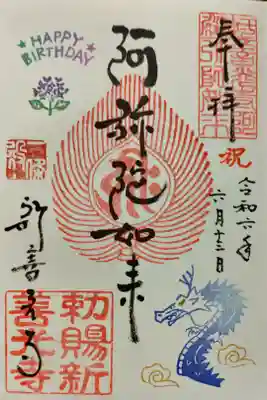 HAPPY
BIRTHDAY
奉拝
祝
令和六年
六月十三日
阿弥陀如来
新善光寺
勅賜新
善光寺